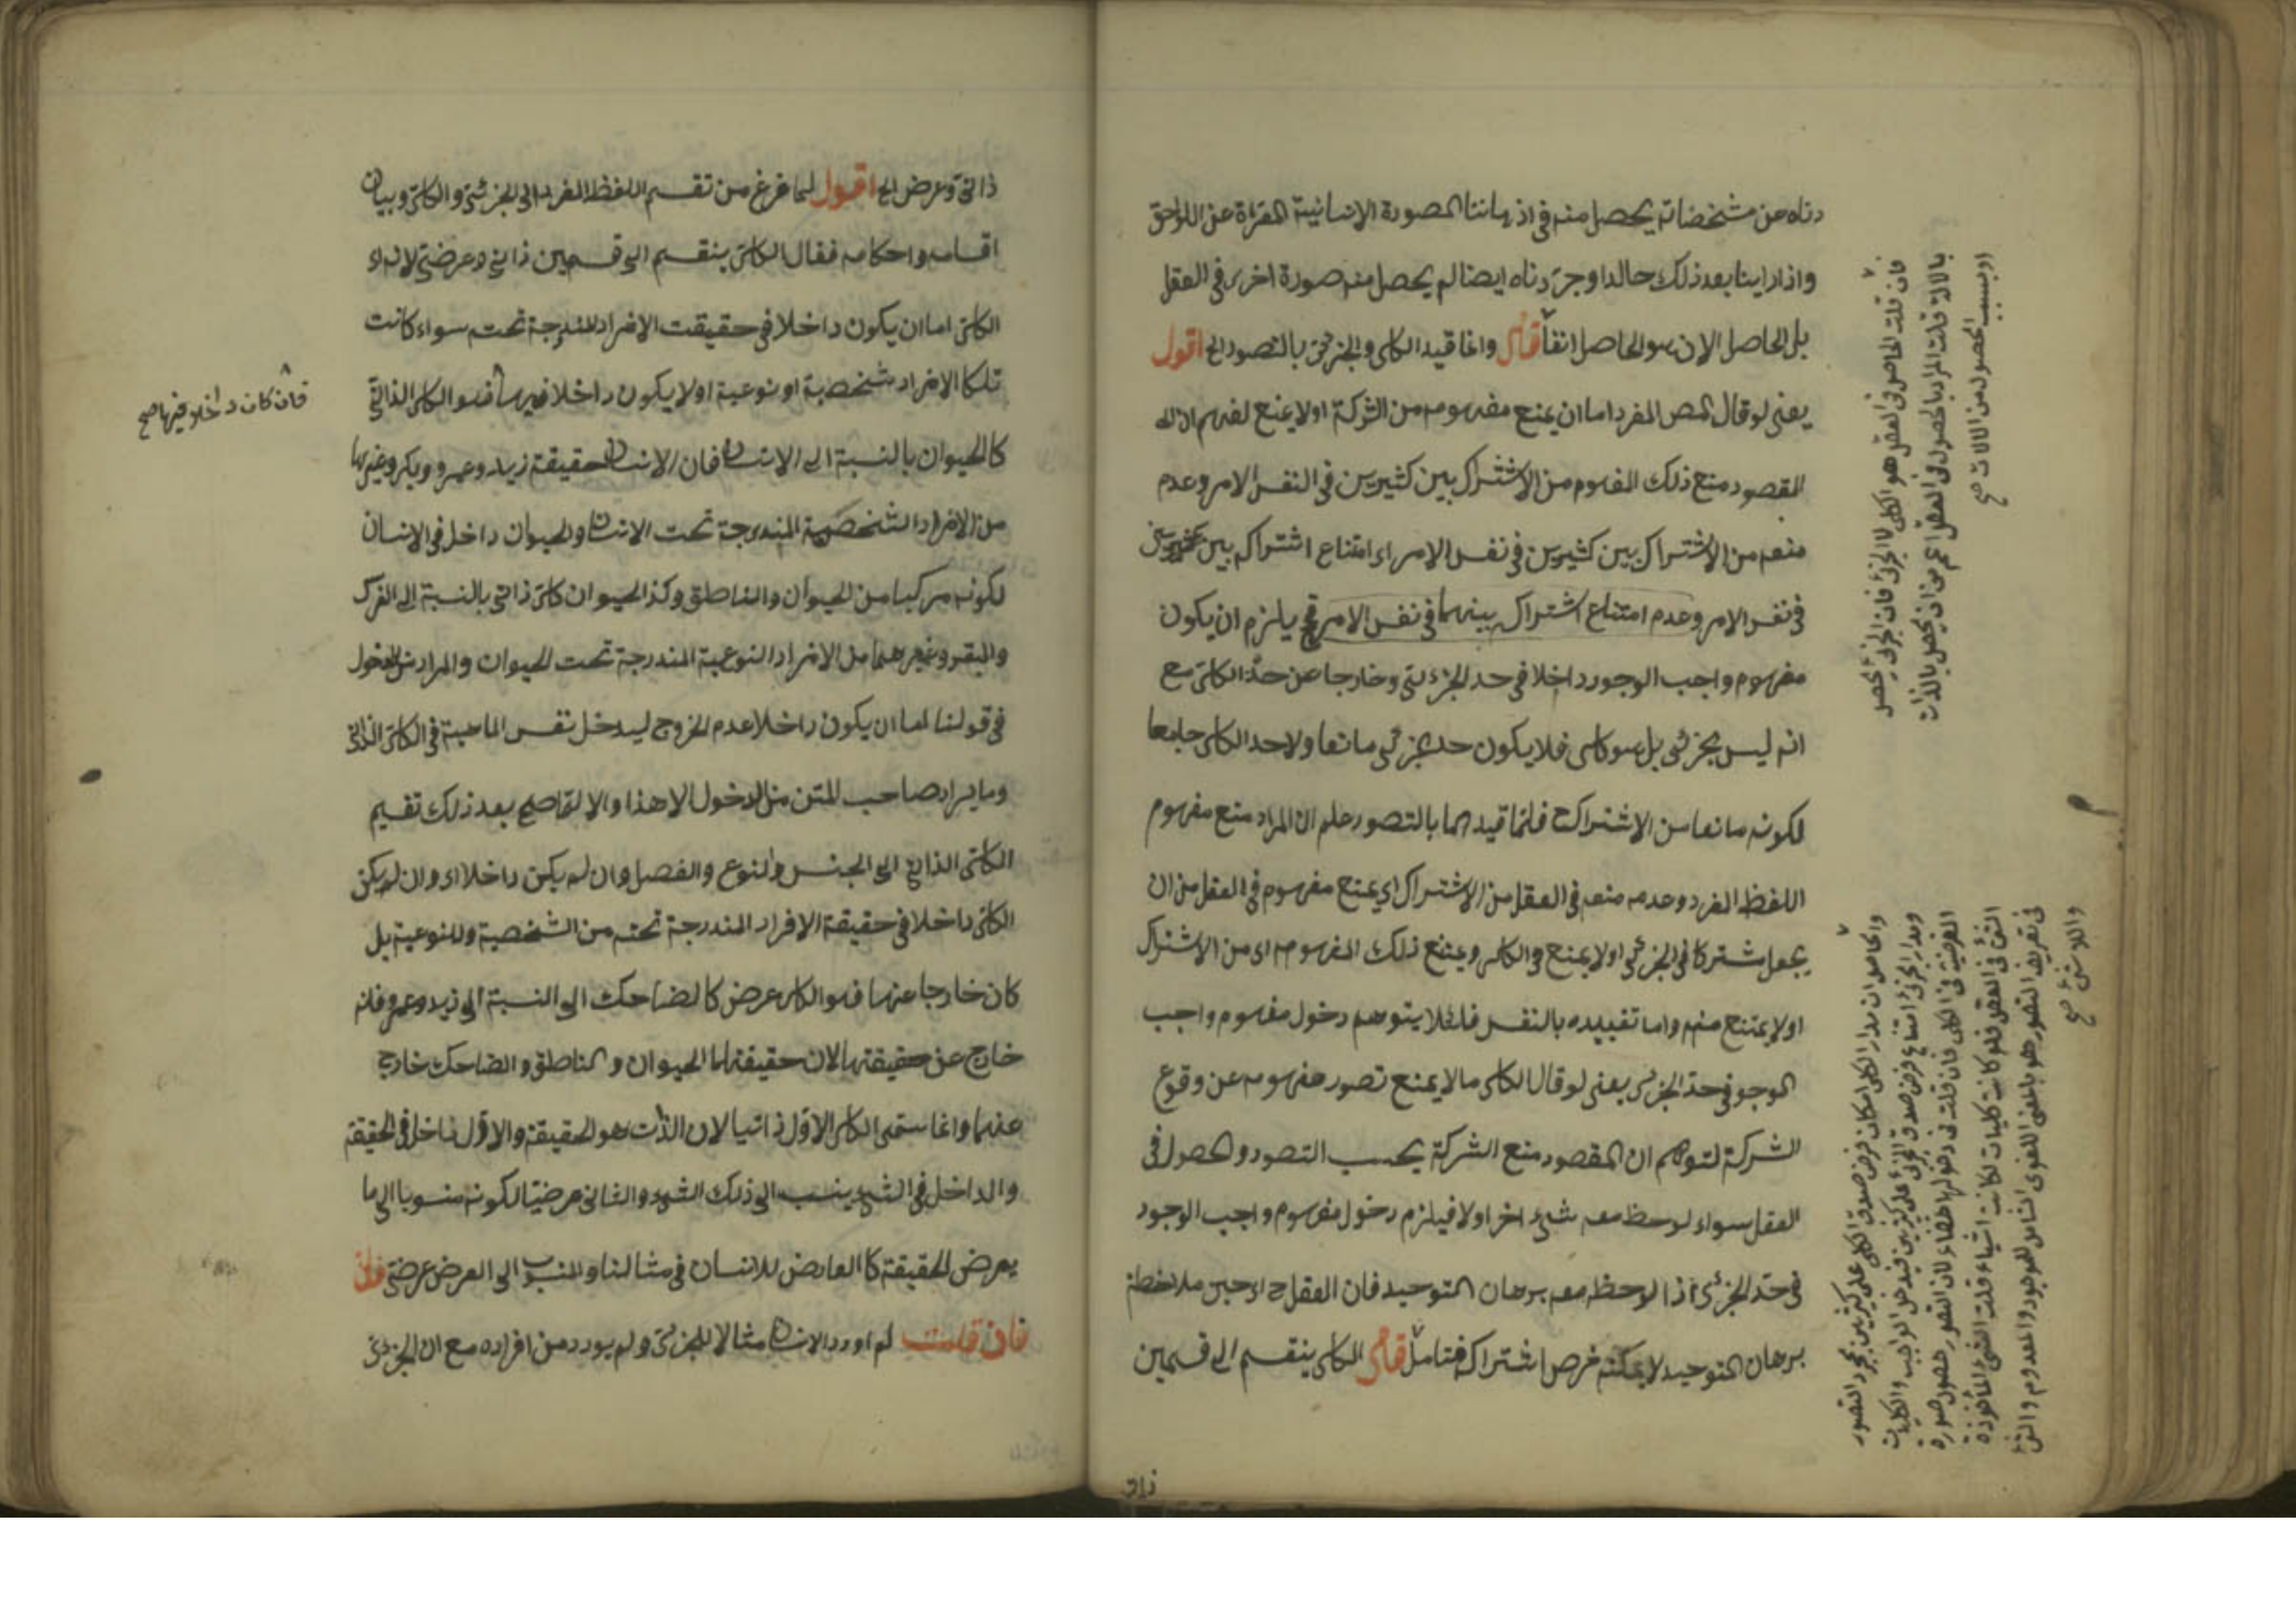 دناه عن مشخصاته يحصل منه في اذهاننا الصورة الانسانية المعراة عن اللواحق
واذا راينا بعد ذلك خالدا وجردناه ايضا لم يحصل منه صورة اخرى في العقل
بل الحاصل الان هو الحاصل انفا قال وانما قيد الكلى والجزئى بالتصور الخ اقول
يعنى لو قال المص المفرد اما ان يمنع مفهومه من الشركة اولا يمنع لفهم ان
المقصود منع ذلك المفهوم من الاشتراك بين كثيرين في النفس الامر وعدم
منعه من الاشتراك بين كثيرين في نفس الامر اى امتناع اشتراكه بين كثيرين
في نفس الامر وعدم امتناع اشتراكه بينهما في نفس الامر فح يلزم ان يكون
مفهوم واجب الوجود داخلا في حد الجزئى وخارجا عن حد الكلى مع
انه ليس بجزئى بل هو كلى فلا يكون حد الجزئى مانعا ولا حد الكلى جامعا
لكونه مانعا من الاشتراك فلما قيدهما بالتصور علم ان المراد منع مفهوم
اللفظ المفرد وعدمه منعه في العقل من الاشتراك اي يمنع مفهوم في العقل من ان
يجعل مشتركا في الجزئى اولا يمنع في الكلى ويمتنع ذلك المفهوم اى من الاشتراك
اولا يمتنع منه واما تقييده بالنفس فلئلا يتوهم دخول مفهوم واجب
الوجو في حد الجزئى يعنى لو قال الكلى مالا يمنع تصور مفهومه عن وقوع
الشركة لتوهم ان المقصود منع الشركة بحسب التصور والحصول في
العقل سواء لوحظ معه شئ اخر اولا فيلزم دخول مفهوم واجب الوجود
في حد الجزئى اذا لاحظ معه برهان التوحيد فان العقل ح اى حين ملاحظة
برهان التوحيد لا يمكنه فرض اشتراكه فتامل قال الكلى ينقسم الى قسمين
فان قلت الحاصل في العقل هو الكلى لا الجزئى فان الجزئى يحصل
بالالات قلت المراد بالحصول في العقل اعم من ان يحصل بالذات
او بسبب الحصول من الالات صح
والحاصل ان مدار الكلى امكان فرض صدق الكلى على كثيرين بمجرد التصور
ومدار الجزئى امتناع فرض صدق الجزئى على كثيرين
لان التصور حصول صورة
الشئ في العقل فلو كانت كليات لكانت اشياء قلت الشئ المأخوذ
في تعريف التصور هو بالمعنى اللغوى الشامل للموجود والمعدوم والشئ
واللاشئ صح
ذاتى
ذاتى وعرضى الخ اقول لما فرغ من تقسيم اللفظ المفرد الى الجزئى والكلى وبيان
اقسامه واحكامه فقال الكلى ينقسم الى قسمين ذاتى وعرضى لانه او
الكلى اما ان يكون داخلا في حقيقت الافراد المندرجة تحته سواء كانت
تلك الافراد شخصية او نوعية اولا يكون داخلا فيها فهو الكلى الذاتى
كالحيوان بالنسبة الى الانسان فان الانسان حقيقة زيد وعمرو وبكر وغيرها
من الافراد الشخصية المندرجة تحت الانسان والحيوان داخل في الانسان
لكونه مركبا من الحيوان والناطق وكذا الحيوان كلى ذاتى بالنسبة الى الفرس
والبقر وغيرهما من الافراد النوعية المندرجة تحت الحيوان والمراد من الدخول
في قولنا اما ان يكون داخلا عدم الخروج ليدخل نفس الماهية في الكلى الذاتى
وما يراد صاحب المتن من الدخول الا هذا والا لما صح بعد ذلك تقسيم
الكلى الذاتى الى الجنس والنوع والفصل وان لم يكن داخلا اى وان لم يكن
الكلى داخلا في حقيقة الافراد المندرجة تحته من الشخصية والنوعية بل
كان خارجا عنها فهو الكلى عرض كالضاحك الى النسبة الى زيد وعمرو فانه
خارج عن حقيقتهما لان حقيقتهما الحيوان والناطق والضاحك خارج
عنهما وانما سمى الكلى الاول ذاتيا لان الذات هو الحقيقة والاول داخل في الحقيقة
والداخل في الشئ ينسب الى ذلك الشئ والثانى عرضيا لكونه منسوبا الى ما
يعرض الحقيقة كالعارض للانسان في مثالنا والمنسوب الى العرض عرضى
فان قلت لم اورد الانسان مثالا للجزئى ولم يورد من افراده مع ان الجزئى
فان كان داخلا فيها صح